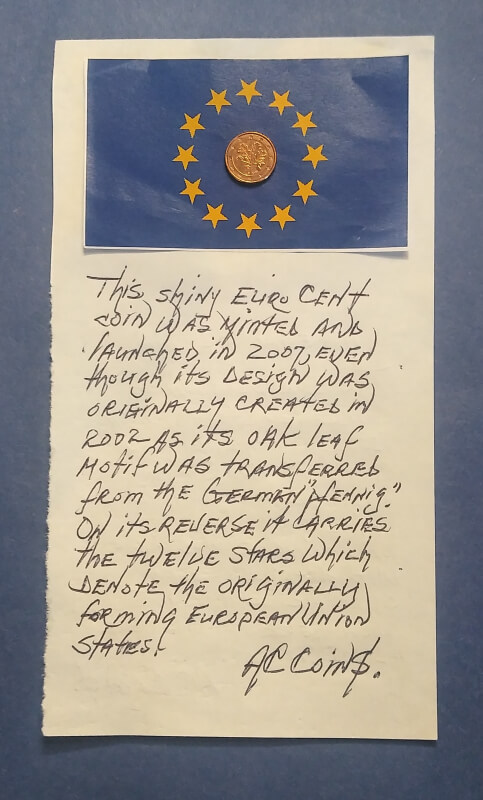 This shiny Euro Cent
coin was minted and
launched in 2007, even
though its design was
originally created in
2002 as its oak leaf
motif was transferred
from the German "pfennig."
On its reverse it carries
the twelve stars which
denote the originally
forming European Union
States.
AC Coin$.